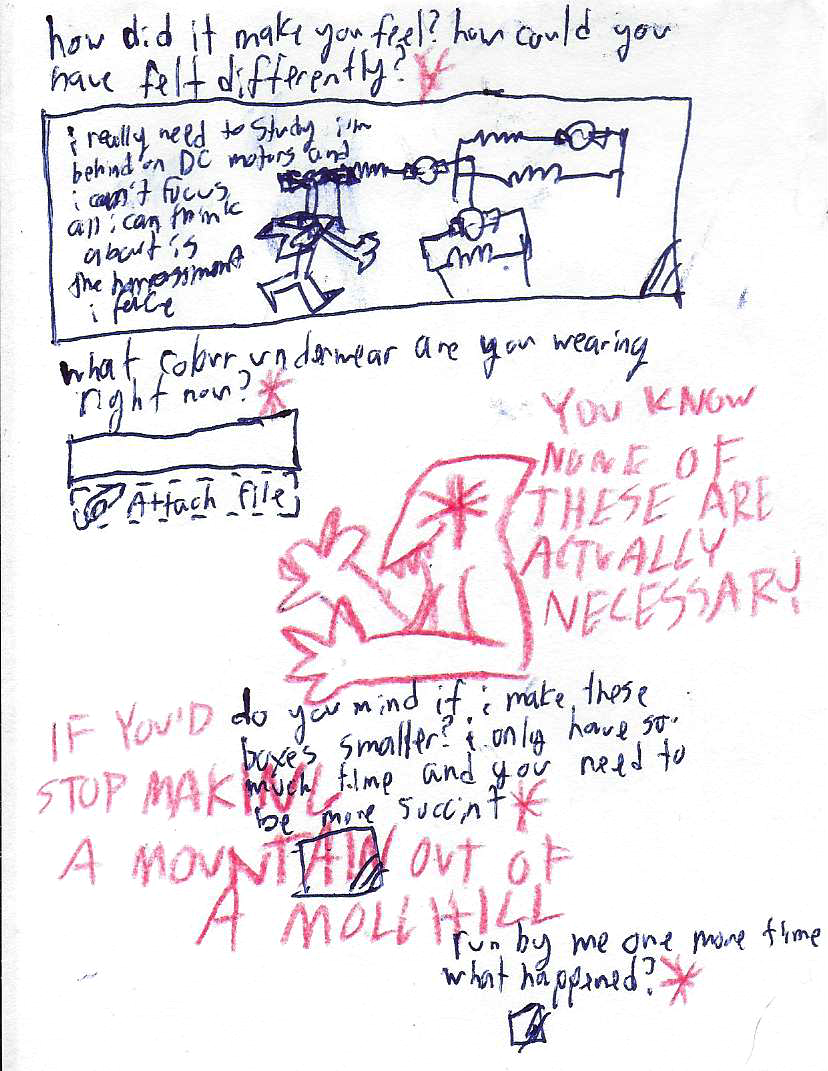 how did it make you feel? how could you
have felt differently? *
i really need to study i'm
behind on DC motors and
i can't focus
all i can think
about is
the harassment
i face
what colour underwear are you wearing
right now? *
Attach file
YOU KNOW
NONE OF
THESE ARE
ACTUALLY
NECESSARY
do you mind if i make these
boxes smaller? i only have so
much time and you need to
be more succint *
IF YOU'D
STOP MAKING
A MOUNTAIN OUT OF
A MOLEHILL
run by me one more time
what happened? *